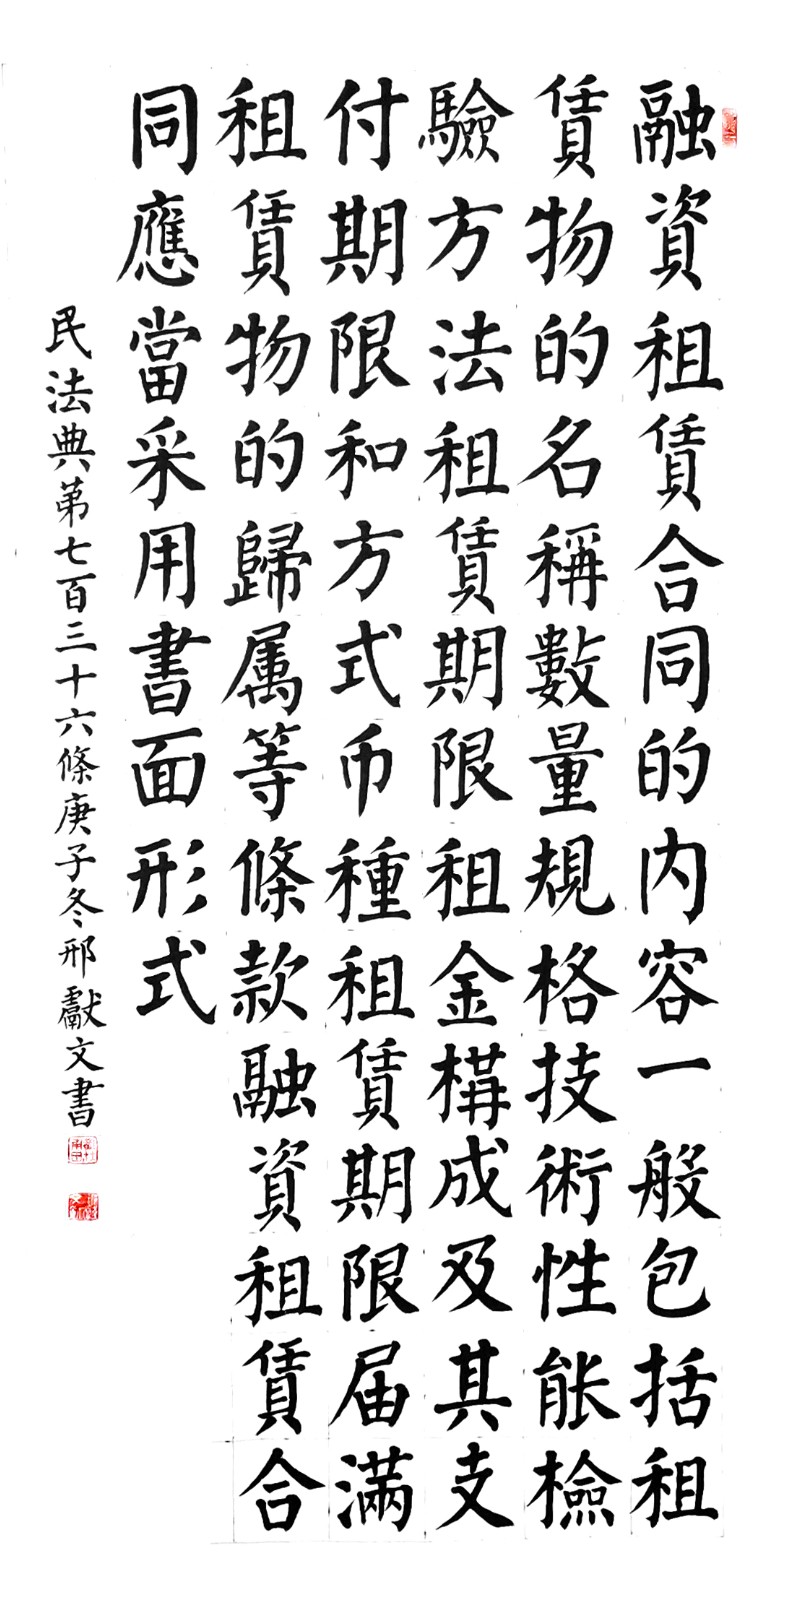 融資租賃合同的内容一般包括租
賃物的名稱數量規格技術性能檢
驗方法租賃期限租金構成及其支
付期限和方式币種租賃期限届滿
租賃物的歸属等條款融資租賃合
同應當采用書面形式
民法典第七百三十六條庚子冬邢獻文書